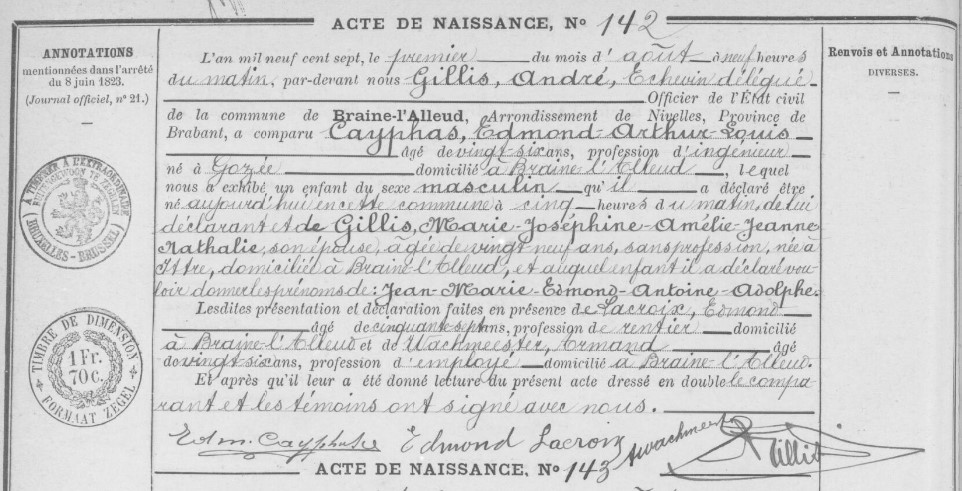 ACTE DE NAISSANCE, No 142
ANNOTATIONS
mentionnées dans l'arrêté
du 8 juin 1823.
(Journal officiel, n° 21.)
L'an mil neuf cent sept, le premier du mois d'août à neuf heures
du matin, par-devant nous Gillis, André, Echevin délégué
Officier de l'État civil
de la commune de Braine-l'Alleud, Arrondissement de Nivelles, Province de
Brabant, a comparu Cayphas, Edmond-Arthur-Louis
âgé de vingt-six ans, profession d'ingénieur
né à Gozée domicilié à Braine-l'Alleud, lequel
nous a exhibé un enfant du sexe masculin qu'il a déclaré être
né aujourd'hui en cette commune à cinq heures du matin, de lui
déclarant et de Gillis, Marie-Joséphine-Amélie-Jeanne
Nathalie, son épouse, âgée de vingt-neuf ans, sans profession, née à
Ittre, domiciliée à Braine-l'Alleud, et auquel enfant il a déclaré vou-
loir donner les prénoms de: Jean-Marie-Edmond-Antoine-Adolphe.
Lesdites présentation et déclaration faites en présence de Lacroix, Edmond
âgé de cinquante-sept ans, profession de rentier domicilié
à Braine-l'Alleud et de Wachmeester, Armand âgé
de vingt-six ans, profession d'employé domicilié à Braine-l'Alleud.
Et après qu'il leur a été donné lecture du présent acte dressé en double le compa
rant et les témoins ont signé avec nous.
Edm. Cayphas Edmond Lacroix A Wachmeester Gillis
ACTE DE NAISSANCE, No 143
Renvois et Annotations
DIVERSES.
A TIMBRER À L'EXTRAORDINAIRE
BRUXELLES-BRUSSEL
TIMBRE DE DIMENSION
1 Fr.
70 C.
FORMAAT ZEGEL